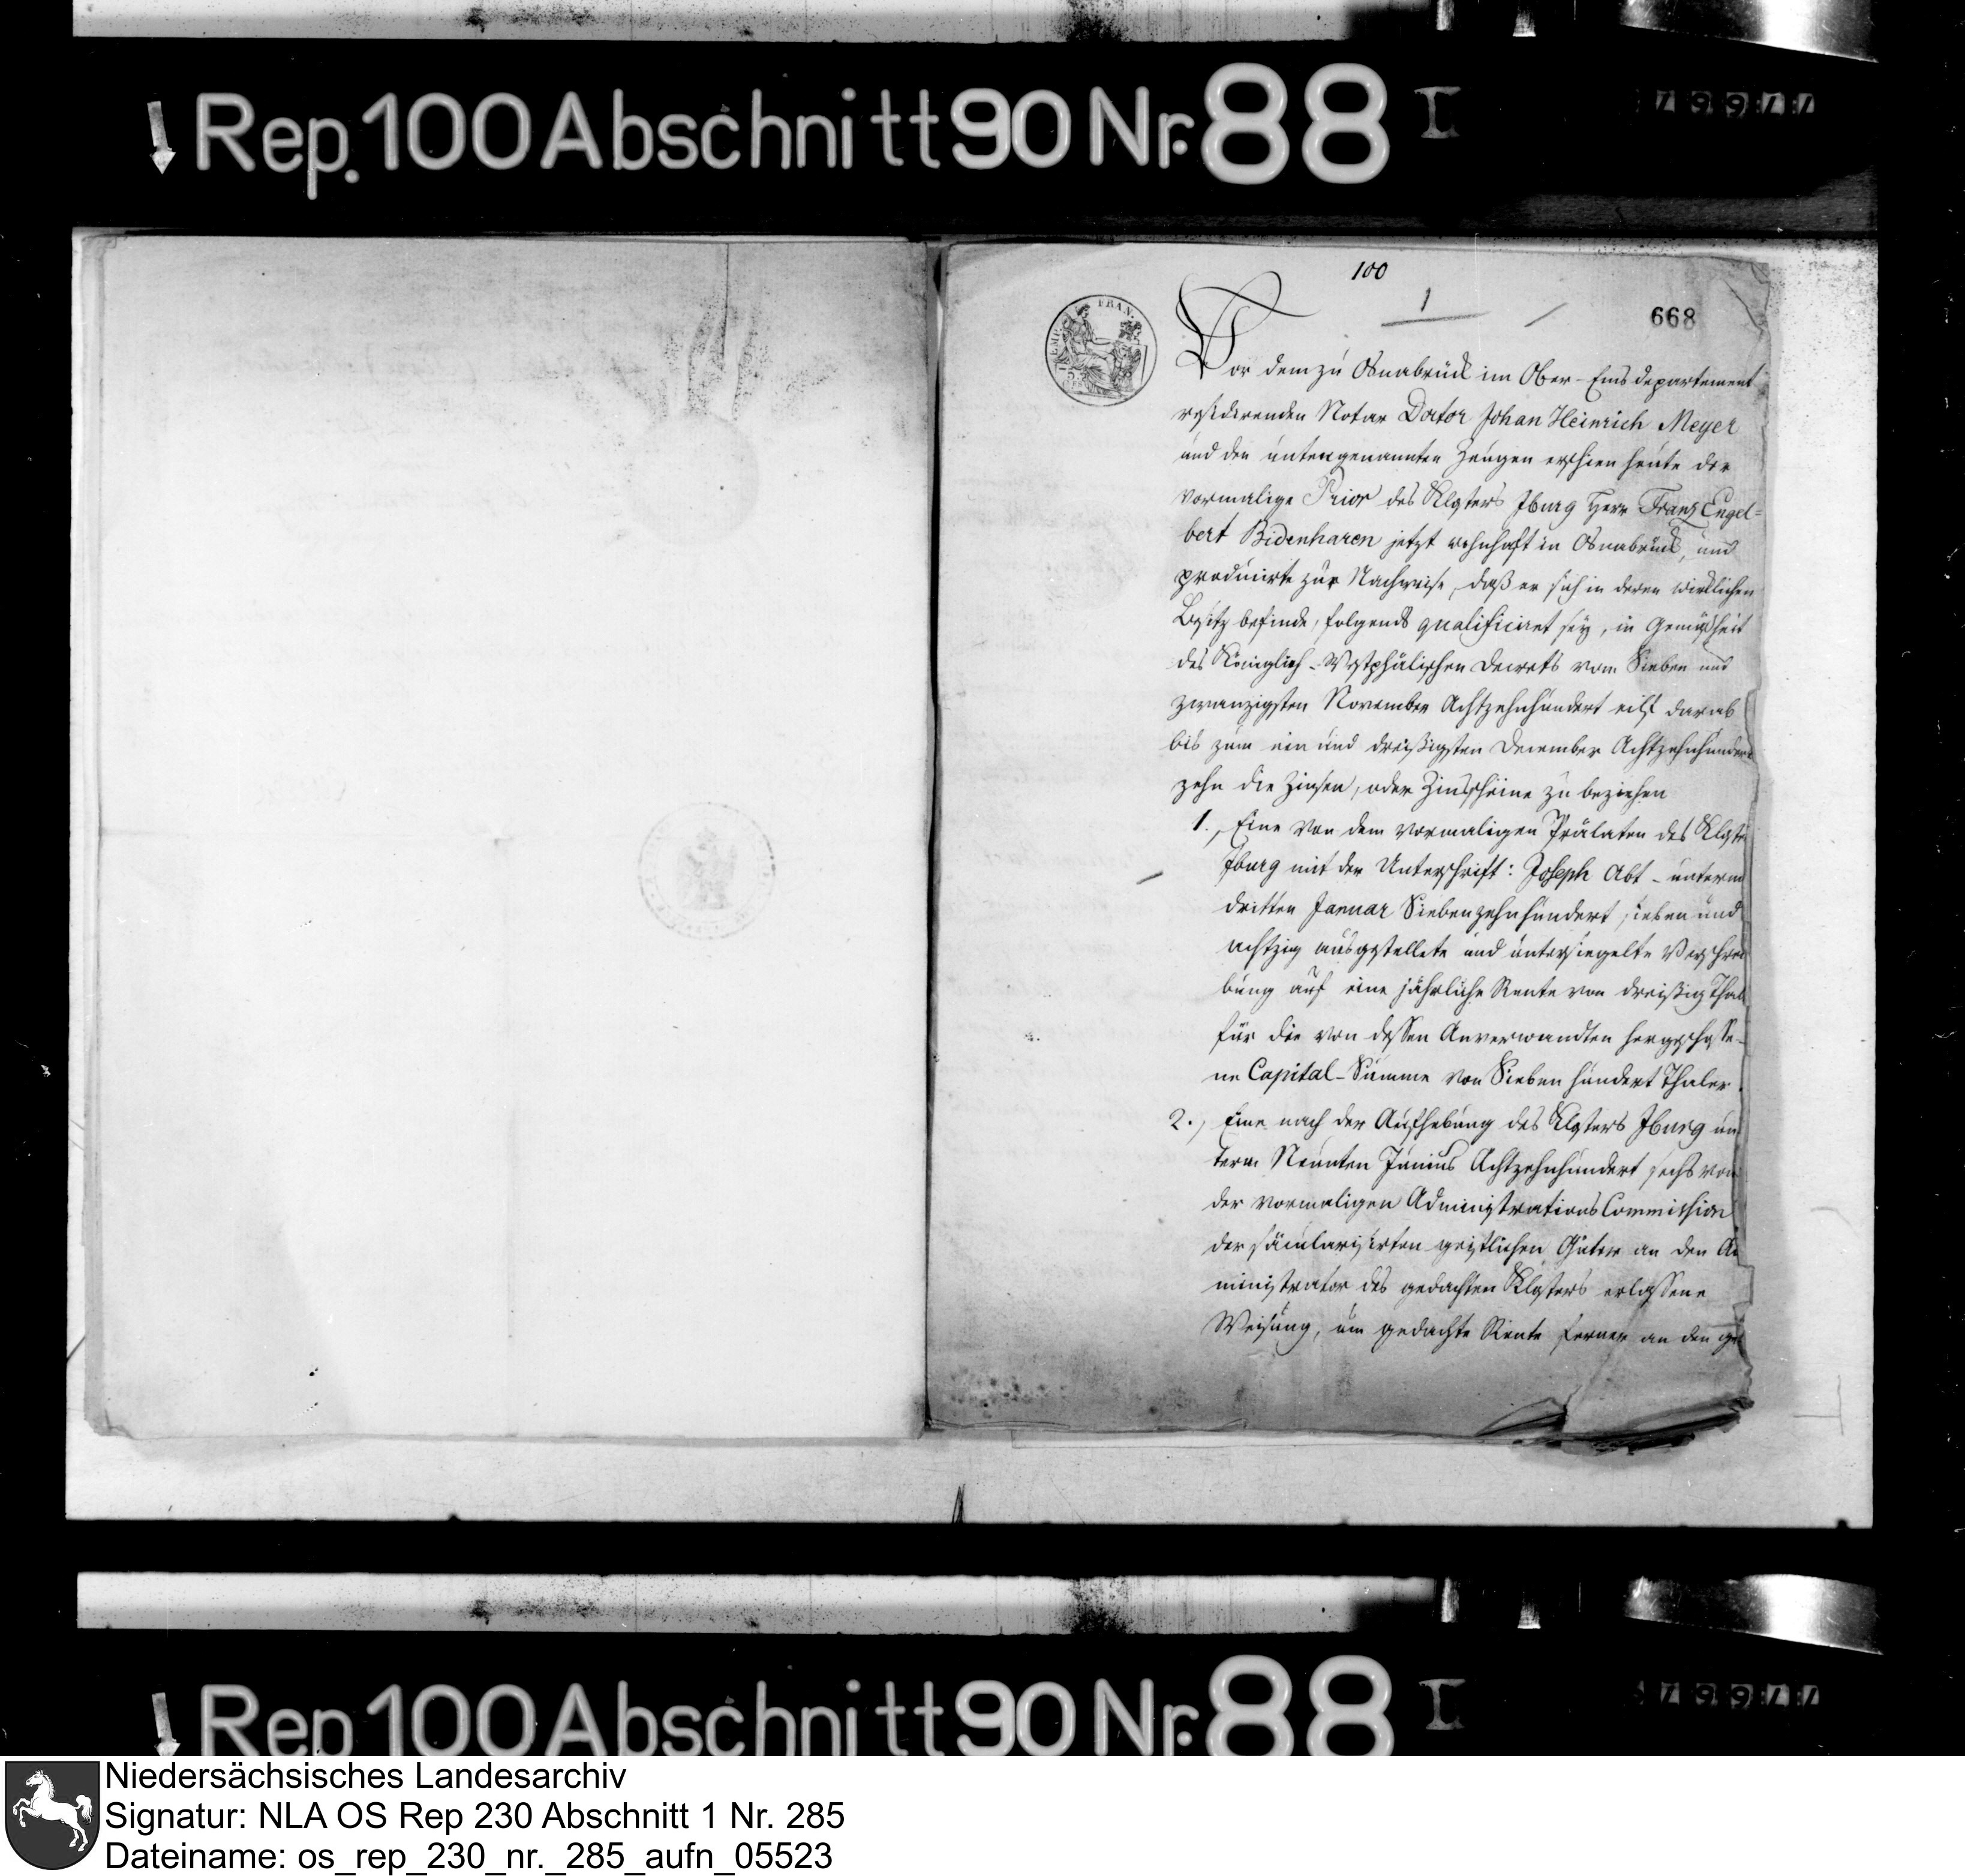 Rep. 100 Abschnitt 90 Nr. 88 I
100
1
668
EMP. FRAN.
Vor dem zu Osnabrück im Ober-Emsdepartement
residirenden Notar Doctor Johan Heinrich Meyer
und den untengenannten Zeugen erschien heute der
vormalige Prior des Klosters Iburg Herr Franz Engel=
bert Bidenharen jetzt wohnhaft in Osnabrück, und
producirte zur Nachweise, daß er sich in deren wirklichen
Besitz befinde, folgends qualificiret sey, in Gemäsheit
des Königlich-Westphälischen Decrets vom Sieben und
zwanzigsten November Achtzehnhundert eilf darab
bis zum ein und dreißigsten December Achtzehnhundert
zehn die Zinsen, oder Zinsscheine zu beziehen
1., Eine von dem vormaligen Prälaten des Kloste
Iburg mit der Unterschrift: Joseph Abt - unterm
dritten Januar Siebenzehnhundert sieben und
achtzig ausgestellete und untersiegelte Verschrei
bung auf eine jährliche Rente von dreißig Thal
für die von dessen Anverwandten hergeschosse-
ne Capital-Summe von Sieben hundert Thaler.
2., Eine nach der Aufhebung des Klosters Iburg un
term Neunten Junius Achtzehnhundert sechs von
der vormaligen Administrations Commission
der säcularisirten geistlichen Güter an den Ad
ministrator des gedachten Klosters erlassene
Weisung, um gedachte Rente ferner an den ge
Rep 100 Abschnitt 90 Nr. 88 I
Niedersächsisches Landesarchiv
Signatur: NLA OS Rep 230 Abschnitt 1 Nr. 285
Dateiname: os_rep_230_nr._285_aufn_05523